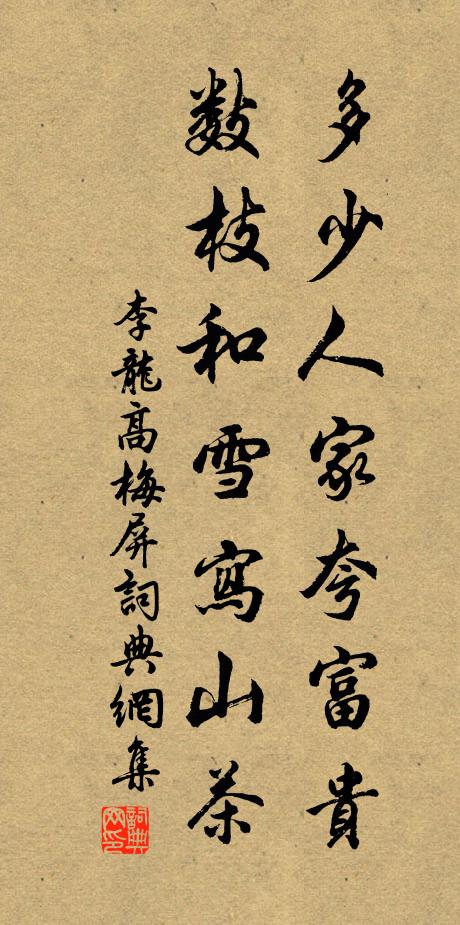 多少人家夸富貴
數枝和雪寫山茶
李龍高梅屏詞典網集
詞典網印